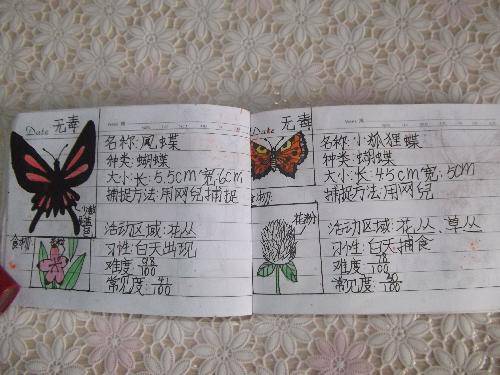 Date 无毒
名称:凤蝶
种类:蝴蝶
大小:长:5.5cm宽:6cm
捕捉方法:用网兒捕捉
食物:
活动区域:花丛
习性:白天出现
难度:98/100
常见度:41/100
Date 无毒
名称:小狐狸蝶
种类:蝴蝶
大小:长:45cm宽:50cm
捕捉方法:用网兒
食物:
花粉
活动区域:花丛、草丛
习性:白天捕食
难度:78/100
常见度:40/100